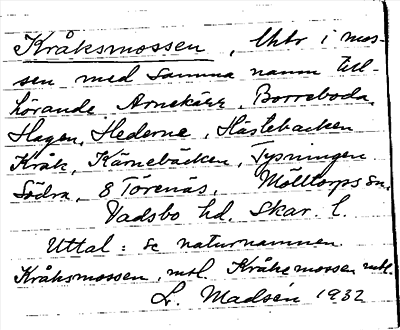 Kråksmossen, Uhtr i mos-
sen med samma namn till-
hörande Arnekärr, Borreboda,
Hagen, Hederne, Hästebacken
Kråk, Kärnebäcken, Tysningen
Södra, 8 Törenäs, Mölltorps sn,
Vadsbo hd. Skar. l.
Uttal: se naturnamnen
Kråksmossen, mrl. Kråkemossen mrl.
L. Madsén 1932